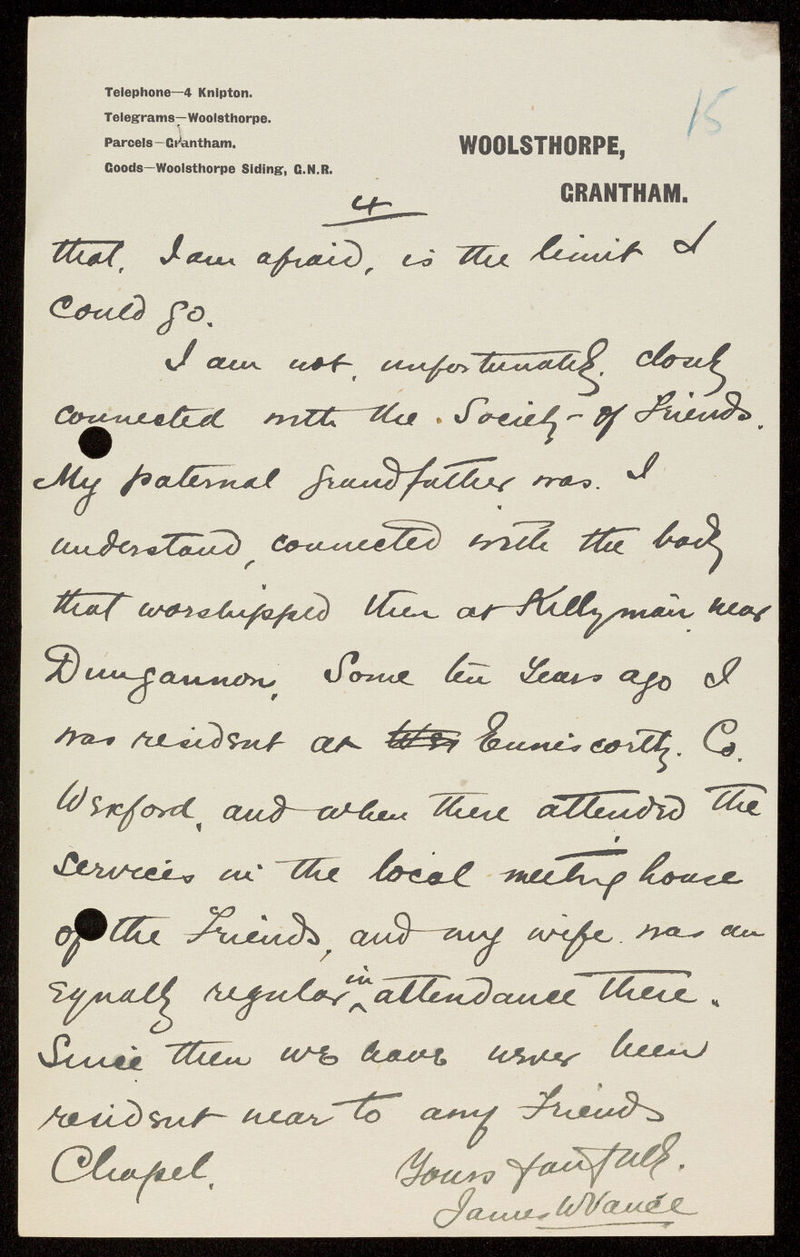 Telephone—4 Knipton.
Telegrams—Woolsthorpe.
Parcels—Grantham.
Goods—Woolsthorpe Siding, G.N.R.
15
WOOLSTHORPE,
GRANTHAM.
4
that, I am afraid, is the limit I
could go.
I am not, unfortunately, closely
connected with the Society of Friends.
My paternal grandfather was. I
understand, connected with the body
that worshipped then at Killyman near
Dungannon. Some ten years ago I
was resident at Wex Enniscorthy. Co.
Wexford, and when there attended the
services in the local meeting house
of the Friends, and my wife was an
equally regular in attendance there.
Since then we have never been
resident near to any Friends
Chapel.
Yours faithfully.
James W Vance